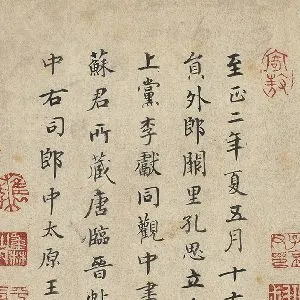 至正二年夏五月十
員外郎闕里孔思立
上黨李獻同觀中書
蘇君所藏唐臨晉帖
中右司郎中太原王